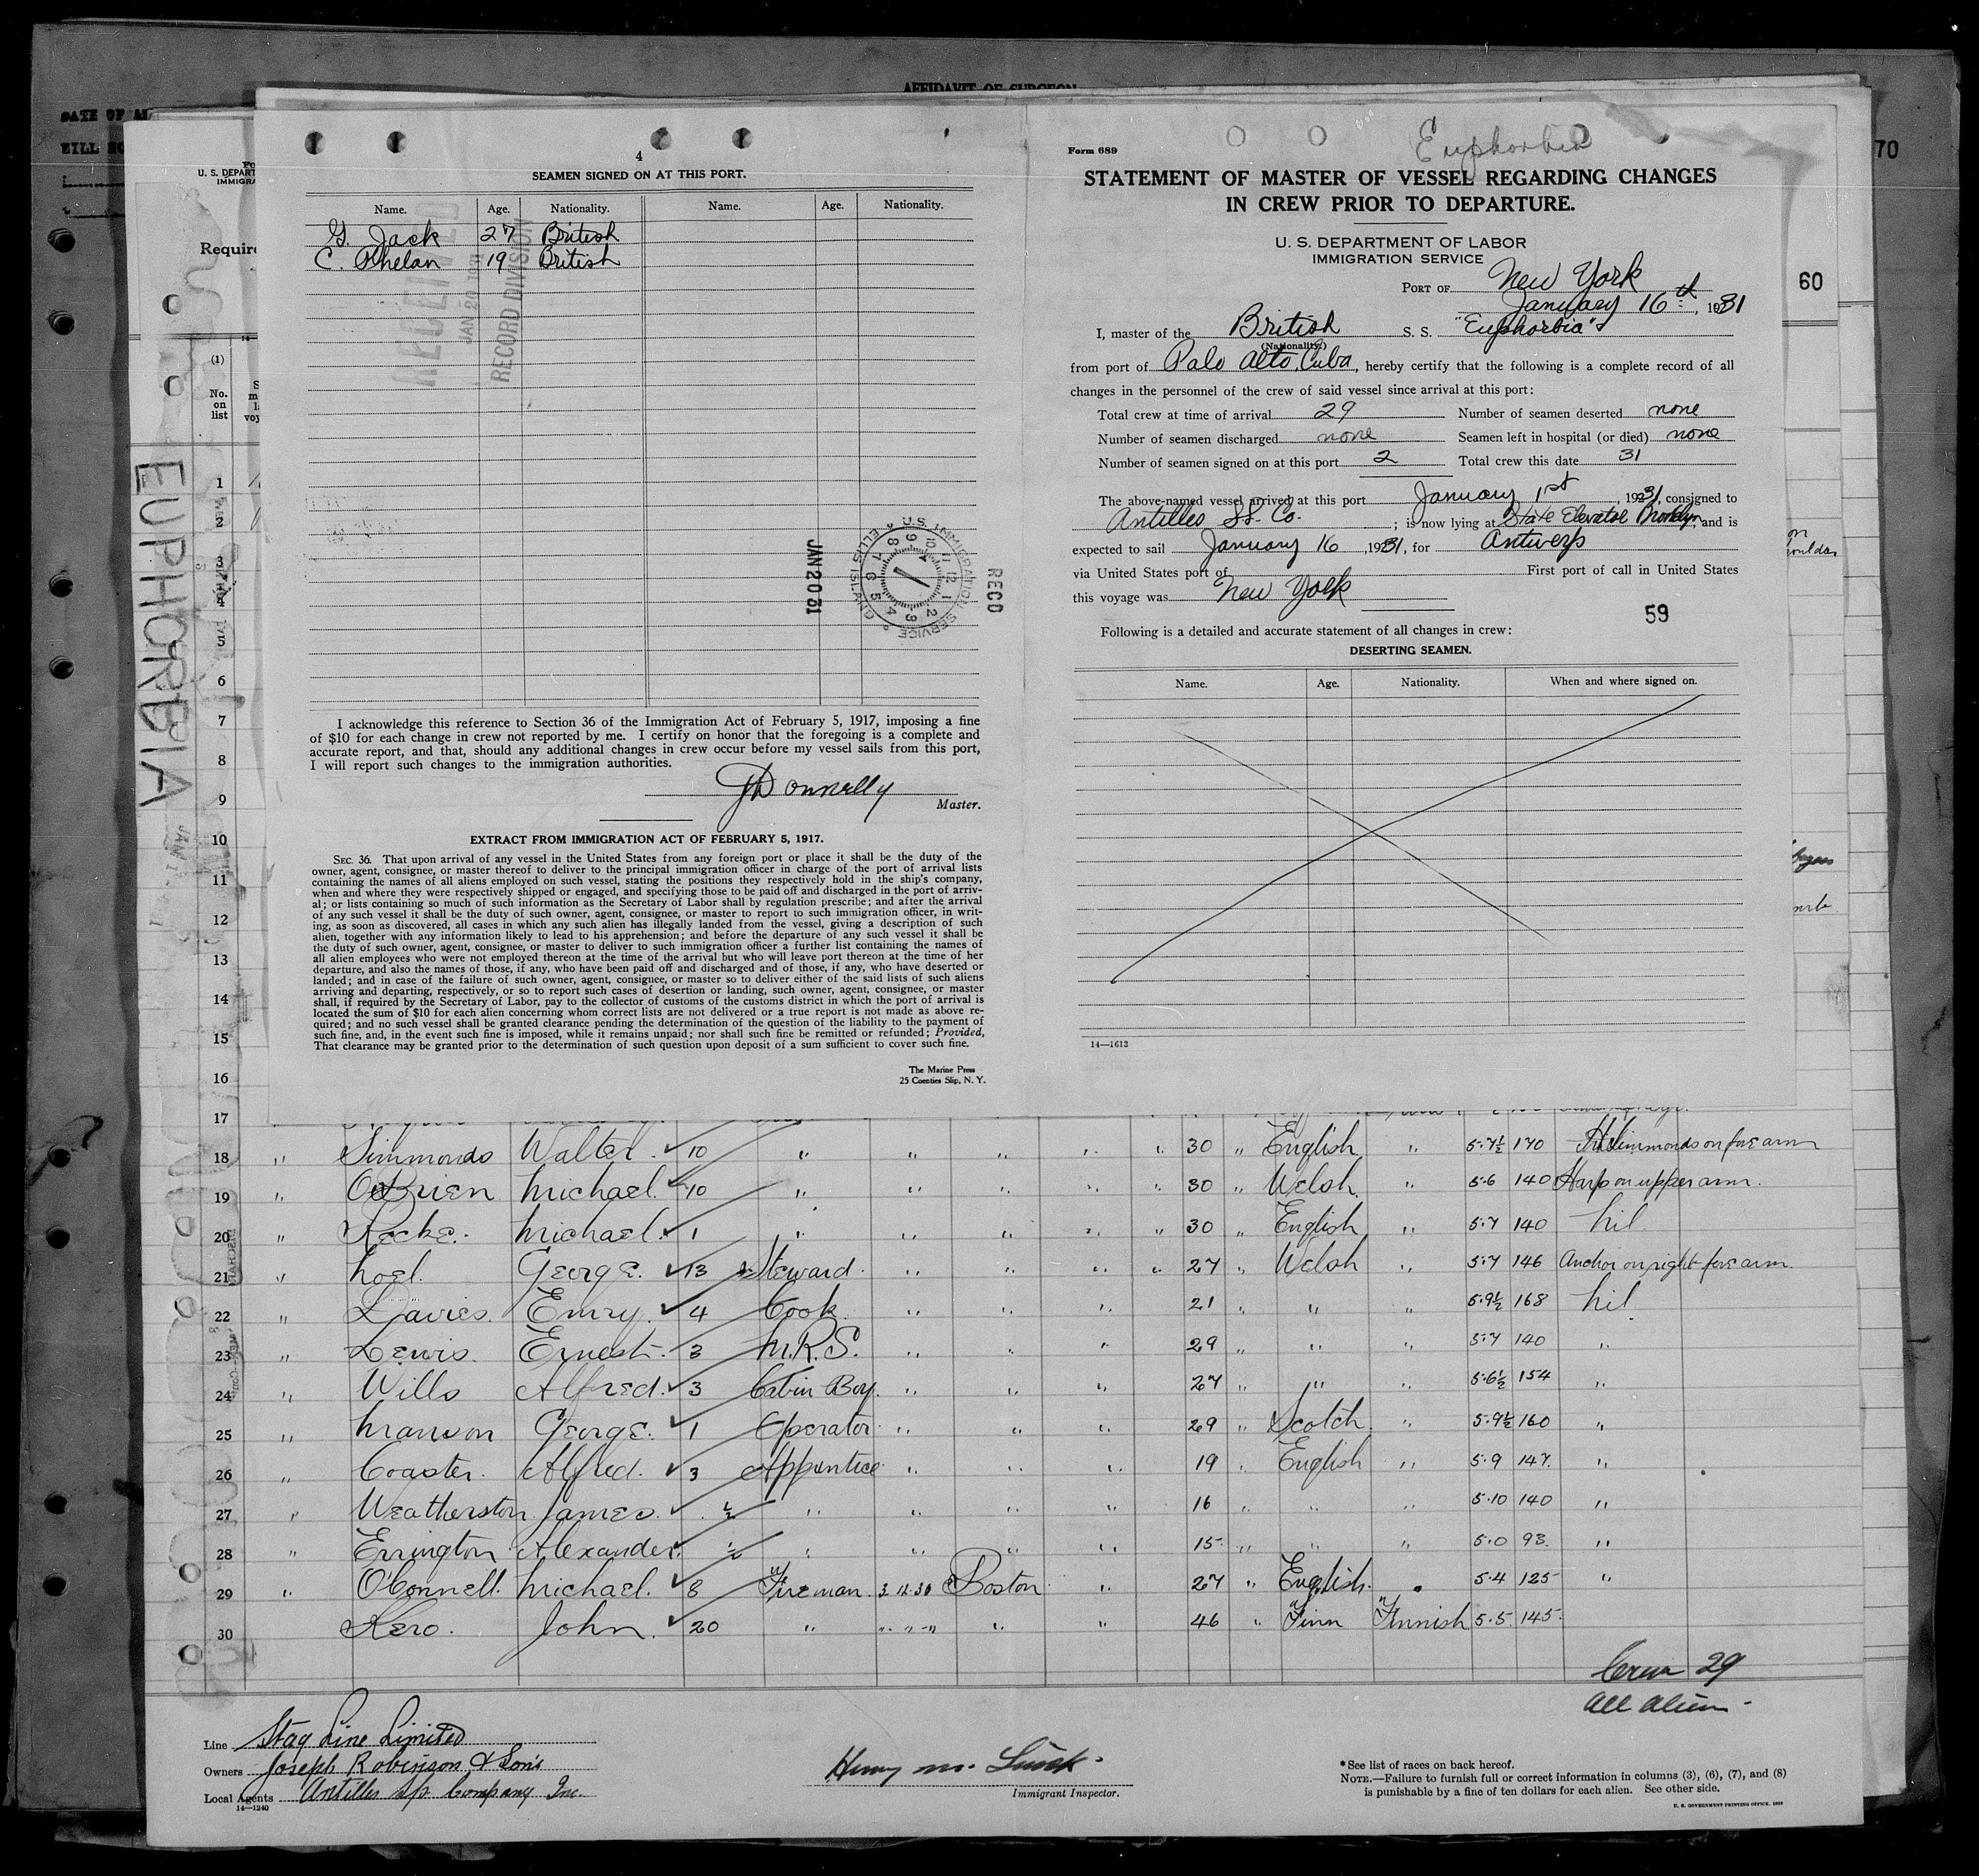 AFFIDAVIT OF SURGEON
70
60
U. S. DEPART
IMMIGRA
Require
(1)
No.
on
list
EUPHORBIA
4
SEAMEN SIGNED ON AT THIS PORT.
Name. Age. Nationality. Name. Age. Nationality.
G. Jack 27 British
C. Phelan 19 British
RECEIVED
JAN 20 1931
RECORD DIVISION
JAN 20 31
U.S. IMMIGRATION SERVICE ELLIS ISLAND
RECD
I acknowledge this reference to Section 36 of the Immigration Act of February 5, 1917, imposing a fine
of $10 for each change in crew not reported by me. I certify on honor that the foregoing is a complete and
accurate report, and that, should any additional changes in crew occur before my vessel sails from this port,
I will report such changes to the immigration authorities.
JDonnelly
Master.
EXTRACT FROM IMMIGRATION ACT OF FEBRUARY 5, 1917.
SEC. 36. That upon arrival of any vessel in the United States from any foreign port or place it shall be the duty of the
owner, agent, consignee, or master thereof to deliver to the principal immigration officer in charge of the port of arrival lists
containing the names of all aliens employed on such vessel, stating the positions they respectively hold in the ship's company,
when and where they were respectively shipped or engaged, and specifying those to be paid off and discharged in the port of arriv-
al; or lists containing so much of such information as the Secretary of Labor shall by regulation prescribe; and after the arrival
of any such vessel it shall be the duty of such owner, agent, consignee, or master to report to such immigration officer, in writ-
ing, as soon as discovered, all cases in which any such alien has illegally landed from the vessel, giving a description of such
alien, together with any information likely to lead to his apprehension; and before the departure of any such vessel it shall be
the duty of such owner, agent, consignee, or master to deliver to such immigration officer a further list containing the names of
all alien employees who were not employed thereon at the time of the arrival but who will leave port thereon at the time of her
departure, and also the names of those, if any, who have been paid off and discharged and of those, if any, who have deserted or
landed; and in case of the failure of such owner, agent, consignee, or master so to deliver either of the said lists of such aliens
arriving and departing, respectively, or so to report such cases of desertion or landing, such owner, agent, consignee, or master
shall, if required by the Secretary of Labor, pay to the collector of customs of the customs district in which the port of arrival is
located the sum of $10 for each alien concerning whom correct lists are not delivered or a true report is not made as above re-
quired; and no such vessel shall be granted clearance pending the determination of the question of the liability to the payment of
such fine, and, in the event such fine is imposed, while it remains unpaid; nor shall such fine be remitted or refunded; Provided,
That clearance may be granted prior to the determination of such question upon deposit of a sum sufficient to cover such fine.
The Marine Press
25 Coenties Slip, N. Y.
Form 689
Euphorbia
STATEMENT OF MASTER OF VESSEL REGARDING CHANGES
IN CREW PRIOR TO DEPARTURE.
U. S. DEPARTMENT OF LABOR
IMMIGRATION SERVICE
PORT OF New York
January 16th, 1931
I, master of the British S. S. "Euphorbia"
(Nationality)
from port of Palo Alto, Cuba, hereby certify that the following is a complete record of all
changes in the personnel of the crew of said vessel since arrival at this port:
Total crew at time of arrival 29 Number of seamen deserted none
Number of seamen discharged none Seamen left in hospital (or died) none
Number of seamen signed on at this port 2 Total crew this date 31
The above-named vessel arrived at this port January 1st, 1931, consigned to
Antilles SS. Co.; is now lying at State Elevator Brooklyn, and is
expected to sail January 16, 1931, for Antwerp
via United States port of First port of call in United States
this voyage was New York
59
Following is a detailed and accurate statement of all changes in crew:
DESERTING SEAMEN.
Name. Age. Nationality. When and where signed on.
14—1613
1
2
3
4
5
6
7
8
9
10
11
12
13
14
15
16
17
18 " Simmonds Walter. 10 " " " " " 30 " English " 5.7½ 170 Simmonds on fore arm
19 " O'Brien Michael. 10 " " " " " 30 " Welsh " 5.6 140 Harp on upper arm.
20 " Michael. 1 " " " " " 30 " English " 5.7 140 Nil
21 " Noel. George. 13 Steward. " " " " 27 " Welsh " 5.7 146 Anchor on right fore arm.
22 " Davies. Emry. 4 Cook. " " " 21 " " " 5.9½ 168 Nil
23 " Lewis. Ernest. 3 M.R.S. " " " 29 " " " 5.7 140 "
24 " Wills Alfred. 3 Cabin Boy. " " " 27 " " " 5.6½ 154 "
25 " Manson George. 1 Operator " " " 29 " Scotch " 5.9½ 160 "
26 " Coaster. Alfred. 3 Apprentice " " " 19 " English " 5.9 147. "
27 " Weatherston James. ½ " " " " 16 " " " 5.10 140 "
28 " Errington Alexander. " " " " 15 " " " 5.0 93. "
29 " O'Connell. Michael. 8 Fireman. 3.12.30 Boston " 27 " English. " 5.4 125 "
30 Kero. John. 20 " " " " " " 46 " Finn Finnish 5.5. 145.
Crew 29
All alien
Line Stag Line Limited
Owners Joseph Robinson & Son's
Local Agents Antilles s/s Company Inc.
14—1240
Immigrant Inspector.
*See list of races on back hereof.
NOTE.—Failure to furnish full or correct information in columns (3), (6), (7), and (8)
is punishable by a fine of ten dollars for each alien. See other side.
U. S. GOVERNMENT PRINTING OFFICE